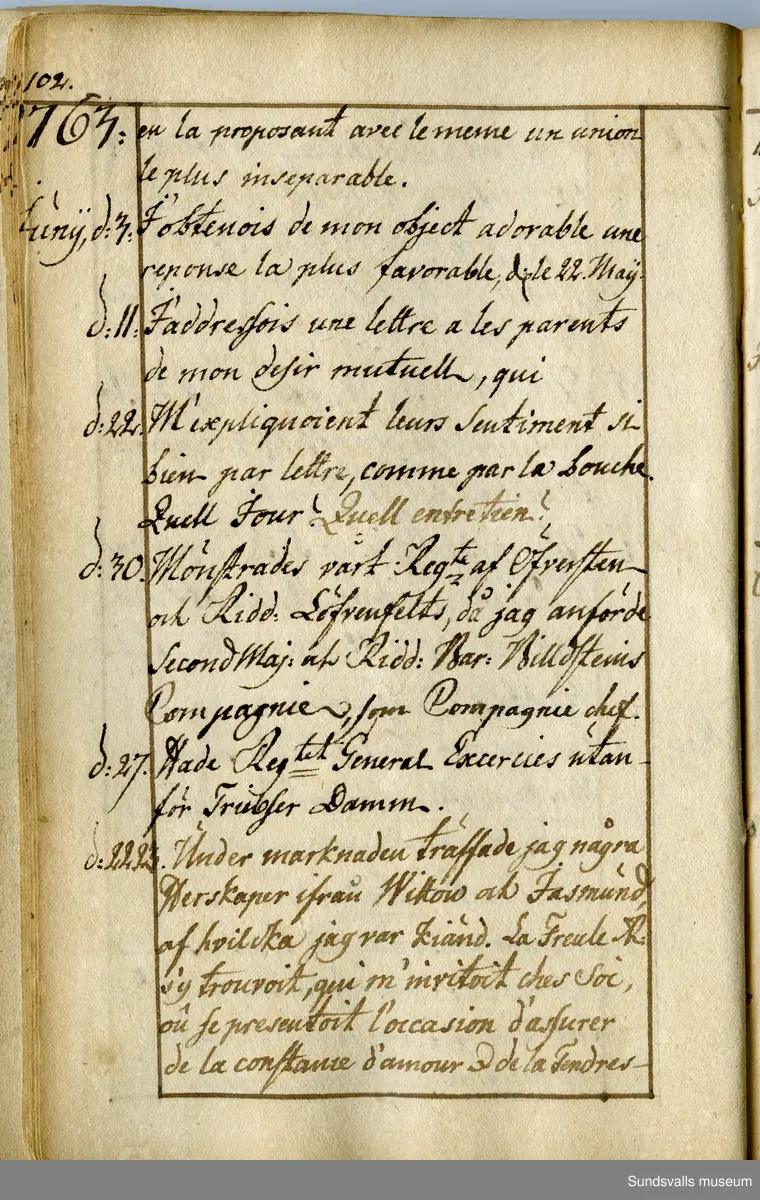 102.
1763: en la proposant avec le meme un union
le plus inseparable.
Junÿ, d: 3: J'obtenois de mon object adorable une
reponse la plus favorable, de le 22. Maÿ.
d: 11: J'addressois une lettre a les parents
de mon desir mutuell, qui
d: 22. M'expliquoient leurs sentiment si
bien par lettre, comme par la bouche.
Quell Jour! Quell entretien!
d: 30. Mönstrades vårt Regte af Öfversten
och Ridd: Löfvenfelts, då jag anförde
Second Maj: och Ridd: Bar: Billdsteins
Compagnie, som Compagnie chef.
d: 27. Hade Regtet General Excercies utan-
för Triebser Damm.
d: 22 23. Under marknaden träffade jag några
Herskaper ifrån Wittow och Jasmund,
af hvilcka jag var kiänd. La Freule R:
s'y trouvoit, qui m'invitoit ches soi,
où se presentoit l'occasion d'assurer
de la constance d'amour & de la Tendres-
Sundsvalls museum